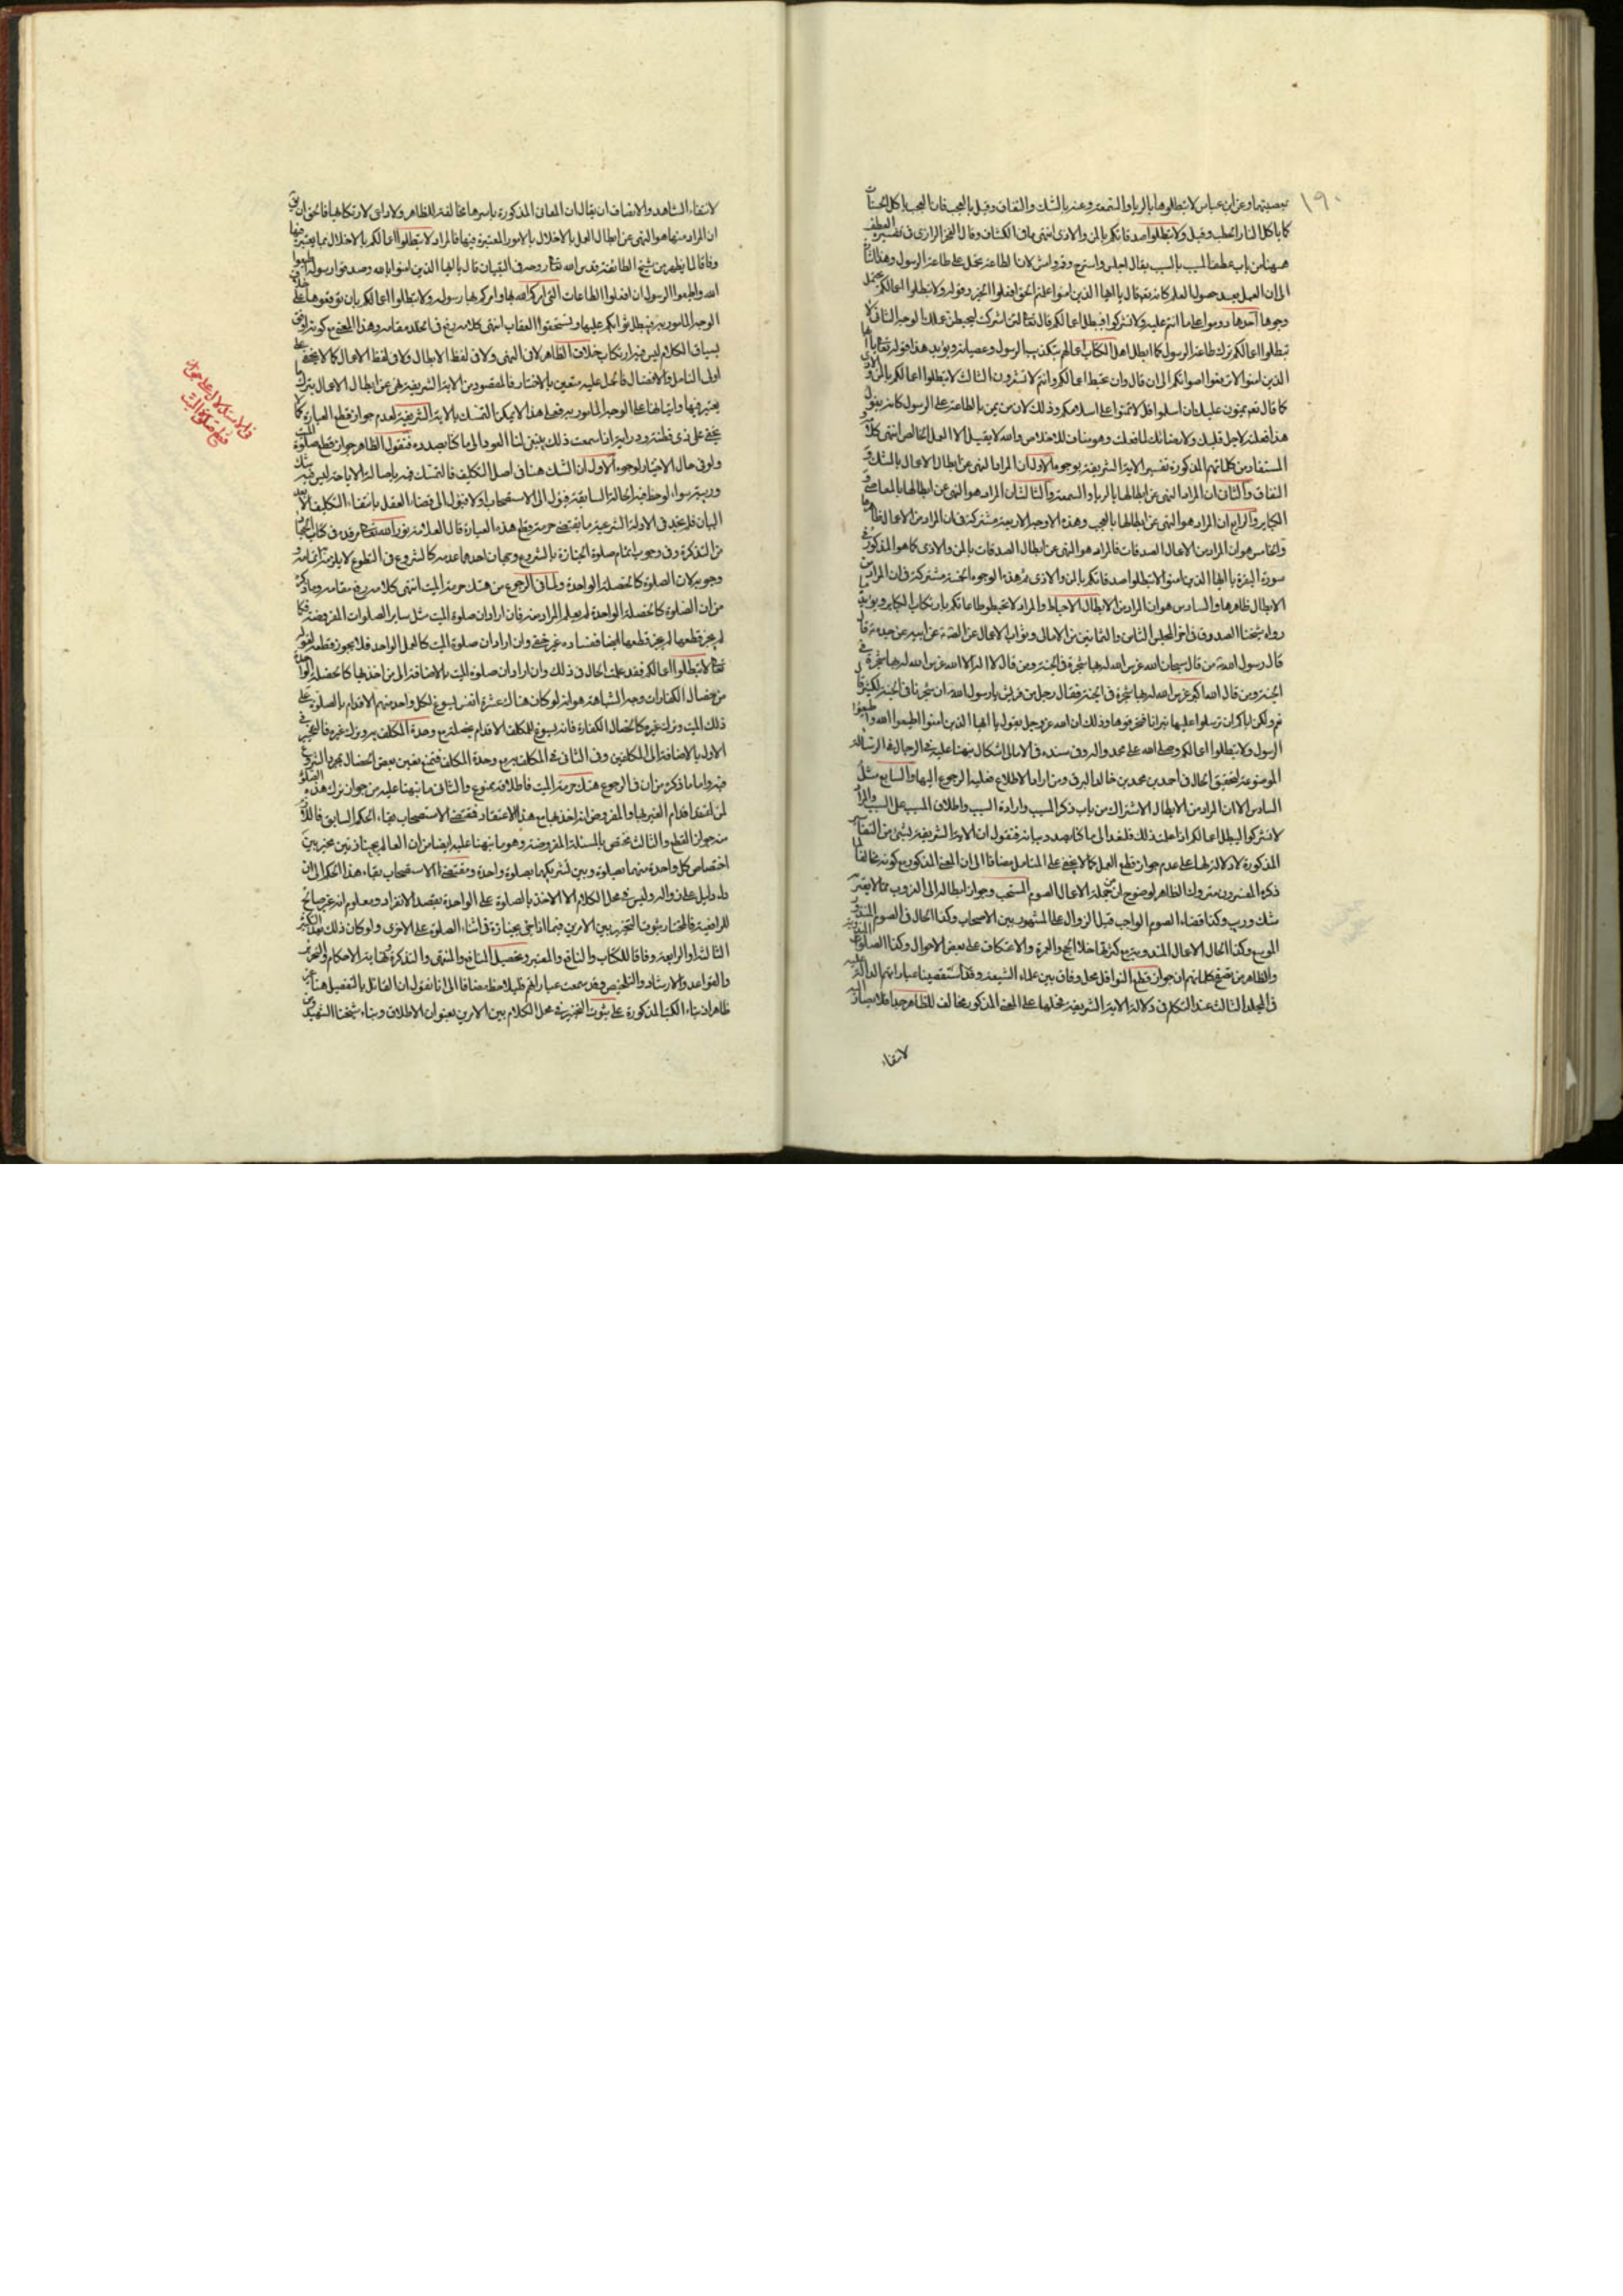 ١٩٠
بمعصيتهما وعن ابن عباس لا تبطلوها بالرياء والسمعة وعنه بالشك والنفاق وقيل بالعجب فان العجب ياكل الحسنات
كما ياكل النار الحطب وقيل ولا تبطلوا صدقاتكم بالمن والاذى انتهى ما في الكشاف وقال الفخر الرازي في تفسيره العطف
ههنا من باب عطف المسبب بالسبب يقال اجلس واسترح وقم وامش لان الطاعة تحمل على طاعة الرسول وهذا اشارة
الى ان العمل بعد حصول العلم كانه تعم قال يا ايها الذين امنوا علمتم الحق افعلوا الخير وقوله ولا تبطلوا اعمالكم يحتمل
وجوها احدها دوموا على ما انتم عليه ولا تشركوا فيبطل اعمالكم قال تعالى لئن اشركت ليحبطن عملك الوجه الثاني لا
تبطلوا اعمالكم بترك طاعة الرسول كما ابطل اهل الكتاب اعمالهم بتكذيب الرسول وعصيانه ويؤيد هذا قوله تعالى يا ايها
الذين امنوا لا ترفعوا اصواتكم الى ان قال وان تحبط اعمالكم وانتم لا تشعرون الثالث لا تبطلوا اعمالكم بالمن والاذى
كما قال تعم يمنون عليك ان اسلموا قل لا تمنوا على اسلامكم وذلك لان من يمن بالطاعة على الرسول كانه يقول
هذا فعلته لاجل قلبك ولا رضاك لما فعلت وهو مناف للاخلاص والله لا يقبل الا العمل الخالص انتهى كلامه
المستفاد من كلماتهم المذكورة تفسير الاية الشريفة بوجوه الاول ان المراد النهى عن ابطال الاعمال بالشك و
النفاق والثاني ان المراد النهى عن ابطالها بالرياء والسمعة والثالث ان المراد هو النهى عن ابطالها بالمعاصي و
الكباير والرابع ان المراد هو النهى عن ابطالها بالعجب وهذه الاوجه الاربعة مشتركة في ان المراد من الاعمال ظاهرها
والخامس هو ان المراد من الاعمال الصدقات فالمراد هو النهى عن ابطال الصدقات بالمن والاذى كما هو المذكور في
سورة البقرة يا ايها الذين امنوا لا تبطلوا صدقاتكم بالمن والاذى ثم هذه الوجوه الخمسة مشتركة في ان المراد من
الابطال ظاهرها والسادس هو ان المراد من الابطال الاحباط والمراد لا تحبطوا طاعاتكم بارتكاب الكباير ويؤيده
رواه شيخنا الصدوق في اخر المجلس الثامن والثمانين من الامالي وثواب الاعمال عن الصادق عن ابيه عن جده ع قال
قال رسول الله من قال سبحان الله غرس الله له بها شجرة في الجنة ومن قال لا اله الا الله غرس الله له بها شجرة في
الجنة ومن قال الله اكبر غرس الله له بها شجرة في الجنة فقال رجل من قريش يا رسول الله ان شجرنا في الجنة لكثير قال
نعم ولكن اياكم ان ترسلوا عليها نيرانا فتحرقوها وذلك ان الله عز وجل يقول يا ايها الذين امنوا اطيعوا الله واطيعوا
الرسول ولا تبطلوا اعمالكم وصلى الله على محمد واله وفي سنده في الامالي اشكال نبهنا عليه في الرجال في الرسالة
الموضوعة لتحقيق الحال في احمد بن محمد بن خالد البرقي ومن اراد الاطلاع فعليه الرجوع اليها والسابع مثل
السادس الا ان المراد من الابطال الاشراك من باب ذكر المسبب وارادة السبب واطلاق المسبب على السبب والمراد
لا تشركوا ليبطل اعمالكم اذا علمت ذلك فلنعد الى ما كنا بصدد بيانه فنقول ان الاية الشريفة بشئ من التفاسير
المذكورة لا دلالة لها على عدم جواز قطع العمل كما لا يخفى على المتامل مضافا الى ان المعنى المذكور مع كونه مخالفا لما
ذكره المفسرون متروك الظاهر لوضوح ان من جملة الاعمال الصوم المستحب وجواز ابطاله الى الغروب مما لا يعتريه
شك وريب وكذا قضاء الصوم الواجب قبل الزوال على المشهور بين الاصحاب وكذا الحال في الصوم المنذور
الموسع وكذا الحال الاعمال المندوبة مع كثرتها خلا الحج والعمرة والاعتكاف على بعض الاحوال وكذا الصلوة المندوبة
والظاهر من تتبع كلماتهم ان جواز قطع النوافل محل وفاق بين علماء الشيعة وقد استقصينا عباراتهم الدالة عليه
في المجلد الثالث عند التكلم في دلالة الاية الشريفة فحملها على المعنى المذكور مخالف للظاهر جدا فلا يصار اليه
لانتفاء
لانتفاء الشاهد والانصاف ان يقال ان المعاني المذكورة باسرها مخالفة للظاهر ولا داعي لارتكابها فالحق ان يق
ان المراد منها هو النهى عن ابطال العمل بالاخلال بالامور المعتبرة فيها فالمراد لا تبطلوا اعمالكم بالاخلال بما يعتبر فيها
وفاقا لما يظهر من شيخ الطائفة قدس الله تعالى روحه في التبيان قال يا ايها الذين امنوا بالله وصدقوا رسوله اطيعوا
الله واطيعوا الرسول ان افعلوا الطاعات التي امركم الله بها وامركم بها رسوله ولا تبطلوا اعمالكم بان توقعوها على خلاف
الوجه المامور به فيبطل ثوابكم عليها وتستحقوا العقاب انتهى كلامه رفع في الخلد مقامه وهذا المعنى مع كونه اوفق
بسياق الكلام ليس فيه ارتكاب خلاف الظاهر لا في النهى ولا في لفظ الابطال ولا في لفظ الاعمال كما لا يخفى على
اولى التامل والافضال فالحمل عليه متعين بالاختيار فالمقصود من الاية الشريفة نهى عن ابطال الاعمال بترك ما
يعتبر فيها واتيانها على الوجه المامور به فعلى هذا لا يمكن التمسك بالاية الشريفة لعدم جواز قطع العبادة كما لا
يخفى على ذى فطنة ودراية اذا سمعت ذلك ينبغى لنا العود الى ما كنا بصدده فنقول الظاهر جواز قطع صلوة الميت
ولو في حال الاختيار لوجوه الاول ان الشك هنا في اصل التكليف فالتمسك فيه باصالة الاباحة ليس فيه شك
وريبة سواء لوحظ فيه الحالة السابقة فيؤل الى الاستصحاب او لا فيؤل الى قضاء العقل بانتفاء التكليف الا بعد
البيان فلم نجد في الادلة الشرعية ما يقتضى حرمة قطع هذه العبادة قال العلامة نور الله تعالى مرقده في كتاب الجنائز
من التذكرة وفي وجوب اتمام صلوة الجنازة بالشروع وجهان احدهما عدمه كالشروع في التطوع لا يلزمه اتمامه و
وجوبه لان الصلوة كالخصلة الواحدة ولما في الرجوع من هتك حرمة الميت انتهى كلامه رفع مقامه وما ذكره
من ان الصلوة كالخصلة الواحدة لم يعلم المراد منه فان اراد ان صلوة الميت مثل ساير الصلوات المفروضة فكما
لم يجز قطعها لم يجز قطعها ايضا ففساده غير خفى وان اراد ان صلوة الميت كالعمل الواحد فلا يجوز قطعه لقوله
تعالى لا تبطلوا اعمالكم فقد علمت الحال في ذلك وان اراد ان صلوة الميت بالاضافة الى من اخذ بها كالخصلة الواحدة
من خصال الكفارات وجه المشابهة هو انه لو كان هناك عشرة انفس يسوغ لكل واحد منهم الاقدام بالصلوة على
ذلك الميت وترك غيره كالخصال الكفارة فانه يسوغ للمكلف الاقدام بخصلة مع وحدة المكلف به وترك غيره فالتخيير في
الاول بالاضافة الى المكلفين وفي الثاني في المكلف به مع وحدة المكلف فنمنع تعين بعض الخصال بمجرد الشروع
فيه واما ما ذكره من ان في الرجوع هتك حرمة الميت فاطلاقه ممنوع والثاني ما نبهنا عليه من جواز ترك هذه الصلوة
لمن اعتقد اقدام الغير بها والمفروض انه اخذ بها مع هذا الاعتقاد فمقتضى الاستصحاب بقاء الحكم السابق فاللازم
منه جواز القطع والثالث مختص بالمسئلة المفروضة وهو ما نبهنا عليه ايضا من ان العالم بجنازتين مخير بين
اختصاص كل واحدة منهما بصلوة وبين تشريكهما بصلوة واحدة ومقتضى الاستصحاب بقاء هذا الحكم الى ان
دل دليل على زواله وليس في محل الكلام الا الاخذ بالصلوة على الواحدة بقصد الانفراد ومعلوم انه غير صالح
للرافعية فالمختار ثبوت التخيير بين الامرين فيما اذا جئ بجنازة في اثناء الصلوة على الاخرى ولو كان ذلك بعد التكبير
الثالثة او الرابعة وفاقا للكتاب والنافع والمعتبر وتحصيل المنافع والمنتهى والتذكرة ونهاية الاحكام والتحرير
والقواعد والارشاد والتلخيص وقد سمعت عباراتهم فليلاحظ مضافا الى انا نقول ان القائل بالتفصيل هنا غير
ظاهر اذ بناء الكتب المذكورة على ثبوت التخيير في محل الكلام بين الامرين بعنوان الاطلاق وبناء شيخنا الشهيد في
في الاستدلال على جواز
قطع صلوة الميت